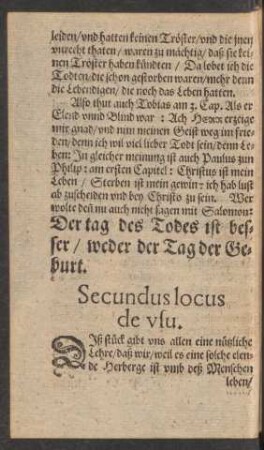 leiden/vnd hatten keinen Tröster/vnd die jnen
vnrecht thaten/ waren zu mächtig/ daß sie kei-
nen Tröster haben kůndten / Da lobet ich die
Todten/die schon gestorben waren/mehr denn
die Lebendigen/ die noch das Leben hatten.
Also thut auch Tobias am 3. Cap. Als er
Elend vnnd Blind war : Ach HERR erzeige
mir gnad/vnd nim meinen Geist weg im frie-
den/denn ich wil viel lieber Todt sein/denn Le-
ben: In gleicher meinung ist auch Paulus zun
Philip: am ersten Capitel: Christus ist mein
Leben / Sterben ist mein gewin: ich hab lust
ab zuscheiden vnd bey Christo zu sein. Wer
wolte deñ nu auch nicht sagen mit Salomon:
Der tag des Todes ist bes-
ser / weder der Tag der Ge-
burt.
Secundus locus
de vsu.
DIß stůck gibt vns allen eine nůtzliche
Lehre/daß wir/weil es eine solche elen-
de Herberge ist vmb deß Menschen
leben/